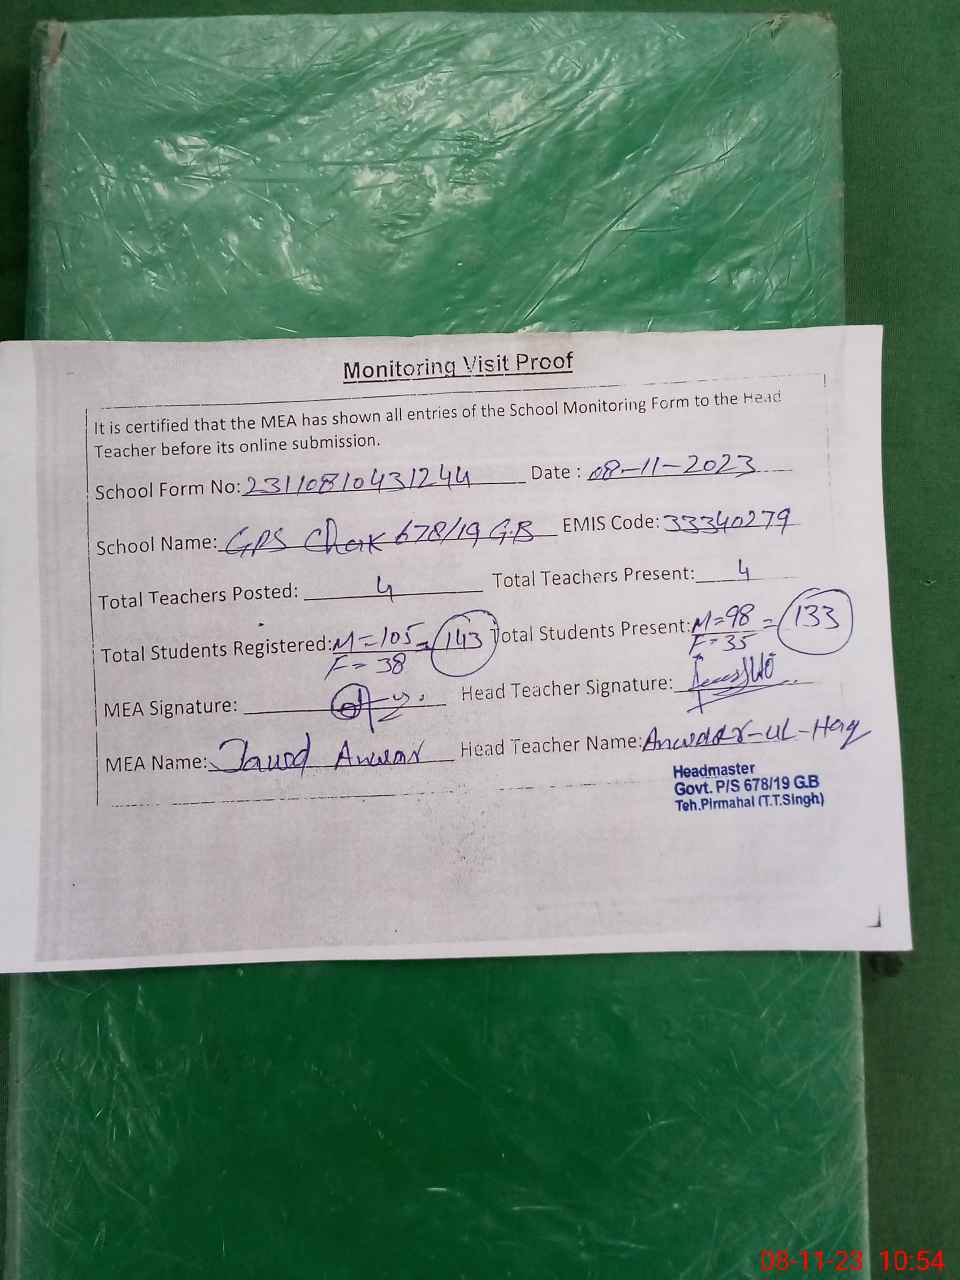 Monitoring Visit Proof
It is certified that the MEA has shown all entries of the School Monitoring Form to the Head
Teacher before its online submission.
School Form No: 23110810431244 Date : 08-11-2023
School Name: GPS Chak 678/19 G.B EMIS Code: 33340279
Total Teachers Posted: 4 Total Teachers Present: 4
Total Students Registered: M=105 = 143 Total Students Present: M=98 = 133
F=38 F=35
MEA Signature: Head Teacher Signature:
MEA Name: Jawad Anwar Head Teacher Name: Anwaar-ul-Haq
Headmaster
Govt. P/S 678/19 G.B
Teh.Pirmahal (T.T.Singh)
08-11-23 10:54